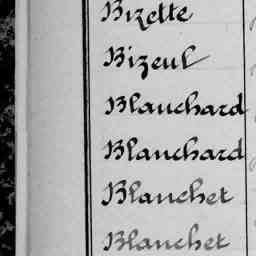 Bizette
Bizeul
Blanchard
Blanchard
Blanchet
Blanchet